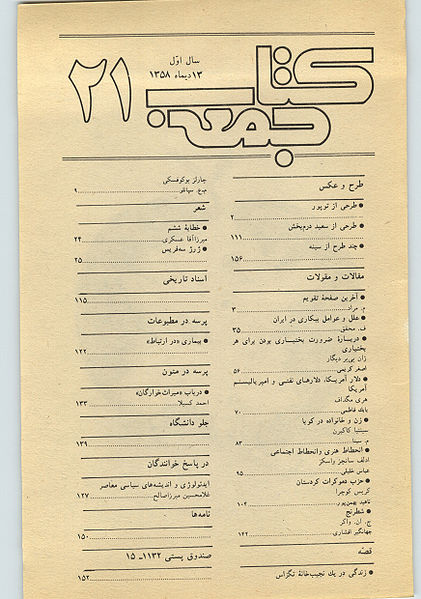 کتاب جمعه
سال اوّل
۱۳ دیماه ۱۳۵۸
۲۱
طرح و عکس
● طرحی از توپور
۲
● طرحی از سعید درم‌بخش
۱۱۱
● چند طرح از سینه
۱۵۶
مقالات و مقولات
● آخرین صفحهٔ تقویم
م. مراد ۳
● علل و عوامل بیکاری در ایران
ف. محقق ۳۵
● دربارهٔ ضرورت بختیاری بودن برای هر
بختیاری
ژان پی‌یر دیگار
اصغر کریمی ۵۶
● دلار آمریکا، دلارهای نفتی و امپریالیسم
آمریکا
هری مگداف
بابك فاطمی ۷۰
● زن و خانواده در کوبا
سینتیا کاکبرن
م. سینا ۸۳
● انحطاط هنری وانحطاط اجتماعی
ادلف سانچز واسکز
عباس خلیلی ۹۵
● حزب دموکرات کردستان
کریس کوچرا
ناهید بهمن‌پور ۱۰۴
● شطرنج
ج. ان. واکر
جهانگیر افشاری ۱۴۲
قصّه
● زندگی در یك نجیب‌خانهٔ تگزاس
چارلز بوکوفسکی
م.ع. سپانلو ۹
شعر
● خطابهٔ ششم
میرزاآقا عسکری ۲۴
● ژرژ سه‌فریس
۲۵
اسناد تاریخی
۱۱۵
پرسه در مطبوعات
● بیماری «در ارتباط»
۱۲۲
پرسه در متون
● درباب «میراث‌خوارگان»
احمد کسیلا ۱۳۳
جلو دانشگاه
۱۳۹
در پاسخ خوانندگان
ایدئولوژی و اندیشه‌های سیاسی معاصر
غلامحسین میرزاصالح ۱۲۷
نامه‌ها
۱۵۰
صندوق پستی ۱۱۳۲ـ ۱۵
۱۵۲